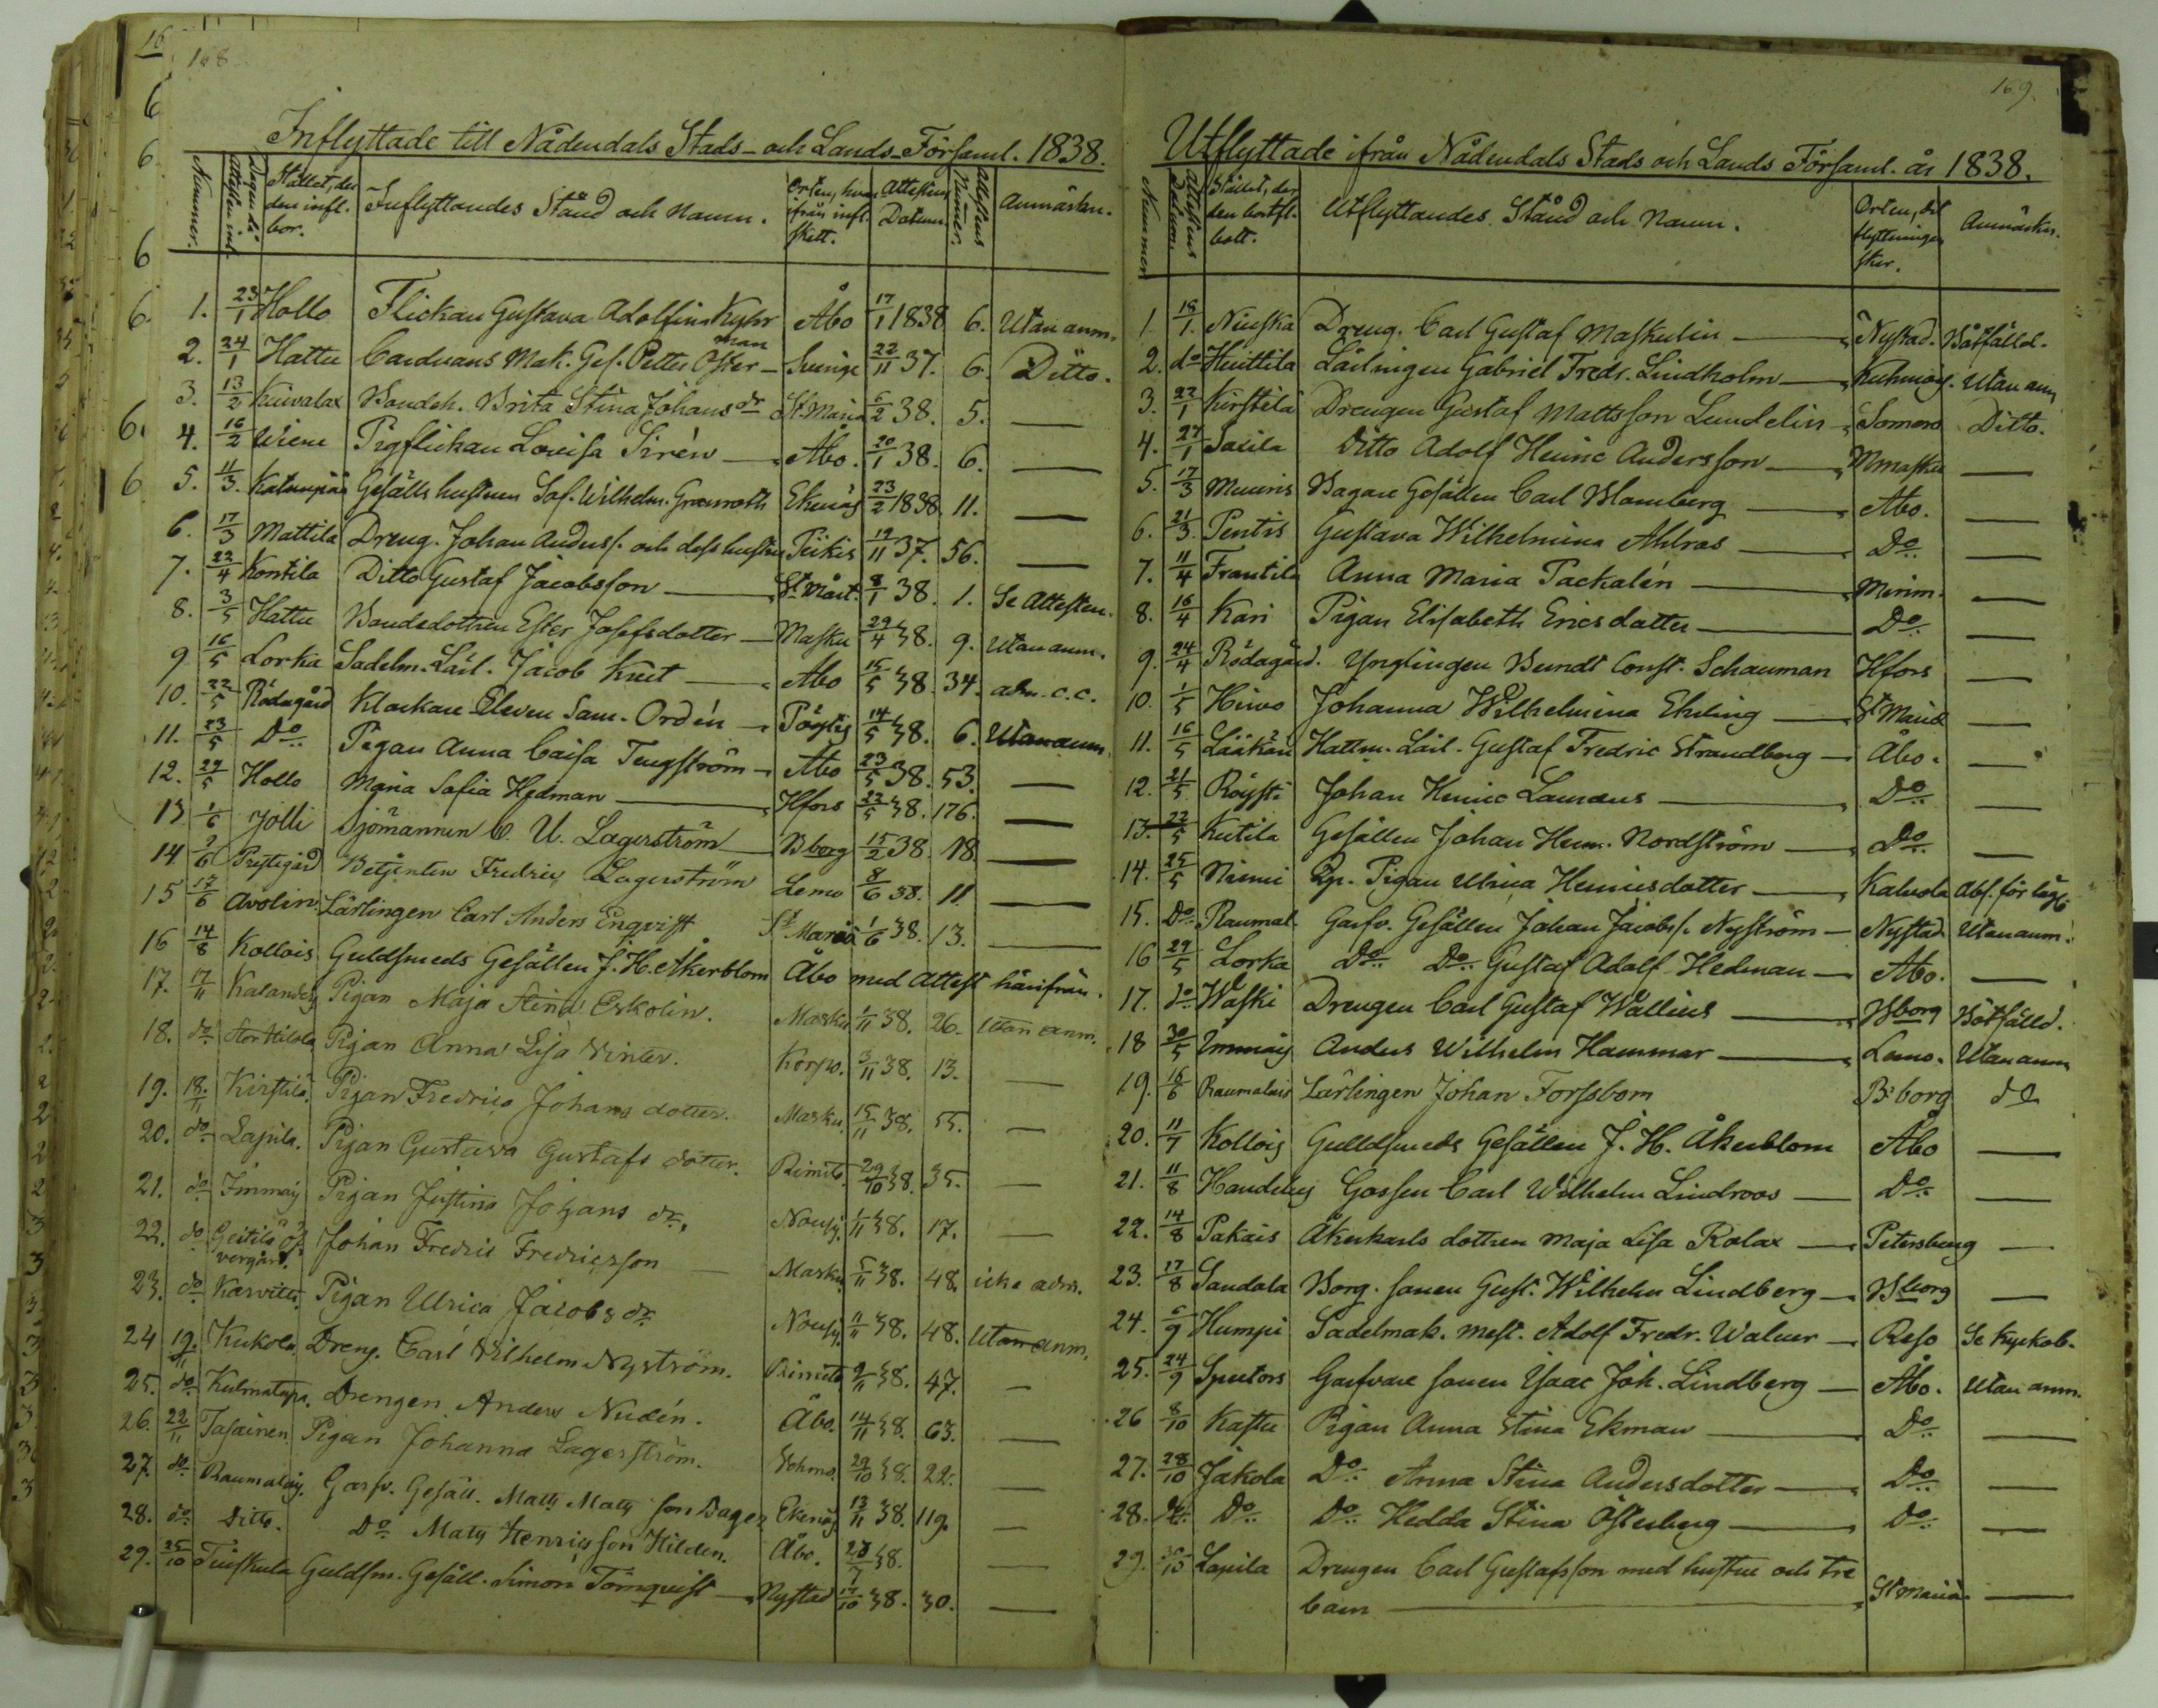 168
Inflyttade till Nådendals Stads- och Lands-Församl. 1838.
Nummer. Stället, der den infl. bor. Inflyttandes Stånd och Namn. Orten, hvar ifrån infl. skett. Attestens Datum. Attestens Nummer. Anmärkn.
1. 23/1 Hollo Flickan Gustava Adolfina Kyhr Åbo 17/1 1838 6. Utan anm.
2. 24/1 Hattu Carduans Mak. Ges. Petter Österman Sverige 22/11 37. 6. Ditto.
3. 13/2 Kuivalax Bondeh. Brita Stina Johans dr St Maria 6/2 38. 5. —
4. 16/2 Wiene Pigflickan Lovisa Sirén Åbo. 20/1 38. 6. —
5. 11/3. Gesälls hustrun Sof. Wilhelm. Grönroth Ekenäs 23/2 1838. 11. —
6. 17/3 Mattila Dreng. Johan Anderss. och dess hustru Piikis 19/11 37. 56. —
7. 22/4 Kontila Ditto Gustaf Jacobsson St Mårt. 8/1 38. 1. Se Attesten.
8. 3/5 Hattu Bondedottren Ester Josefsdotter Masku 29/4 38. 9. Utan anm.
9 16/5 Lorka Sadelm. Lärl. Jacob Kreet Åbo 15/5 38. 34.
10. 22/5 Rödagård Klockare Eleven Sam. Ordén Pöytis 14/5 38. 6. Utan anm.
11. 23/5 Do Pigan Anna Caisa Tengström Åbo 23/5 38. 53. —
12. 29/5 Hollo Maria Sofia Hedman Hfors 22/5 38. 176. —
13 1/6 Jolli Sjömannen C. U. Lagerström Bborg 15/2 38. 18 —
14 9/6 Prestegård Betjenten Fredric Lagerström Lemo 8/6 38. 11 —
15 17/6 Avolin Lärlingen Carl Anders Enqvist St Maria 1/6 38. 13. —
16 14/8 Kollois Guldsmeds Gesällen J. H. Åkerblom Åbo med Attest härifrån.
17. 17/11 Pigan Maja Stina Eskolin. Masku 1/11 38. 26. Utan anm.
18. do Pigan Anna Lisa Vinter. Korpo. 3/11 38. 13. —
19. 18./11 Kirstilä. Pigan Fredrica Johans dotter. Masku. 15/11 38. 55. —
20. do Lapila. Pigan Gustava Gustafs dotter. Rimito. 29/10 38. 35. —
21. do Immais Pigan Justina Johans dr. Nousis. 1/11 38. 17. —
22. do Johan Fredric Fredricsson — Masku. 5/11 38. 48. icke adm.
23. do Karvitti. Pigan Ulrica Jacobs dr Nousis. 11/11 38. 48. Utan anm.
24 19./11 Kukola Dreng. Carl Vilhelm Nyström. Rimito 9/11 38. 47. —
25. do Drengen Anders Nudén. Åbo. 14/11 38. 63. —
26. 22/11 Tasainen Pigan Johanna Lagerström. 29/10 38. 22. —
27. do Raumalais. Garfv. Gesäll. Matts Mats son Dager Ekenäs 13/11 38. 119. —
28. do Ditto. Do Mats Henrics son Hilden. Åbo. 38. —
29. 25/10 Tuiskula Guldsm. Gesäll. Simon Törnqvist Nystad 17/10 38. 30. —
169.
Utflyttade ifrån Nådendals Stads och Lands Församl. år 1838.
Nummer Attestens Datum. Stället, der den bortfl. bott. Utflyttandes Stånd och Namn. Orten, dit flyttningen sker. Anmärkn.
1. 18/1. Niuska Dreng. Carl Gustaf Maskulin Nystad. Bötfälld.
2. do Huittila Lärlingen Gabriel Fredr. Lindholm Kuhmois. Utan anm
3. 22/1 Kirstilä Drengen Gustaf Mattsson Lundelin Somero Ditto.
4. 27/1 Ditto Adolf Henric Andersson —
5. 17/3 Muuris Bagare Gesällen Carl Blomberg Åbo. —
6. 21/3. Pentis Gustava Wilhelmina Ahlros Do —
7. 11/4 Frantila Anna Maria Packalén Merim. —
8. 16/4 Kari Pigan Elisabeth Ericsdotter Do —
9. 24/4 Rödagård. Ynglingen Berndt Const. Schauman Hfors —
10. 1/5 Hirvo Johanna Wilhelmina Ekling St Mariæ —
11. 16/5 Hattm. Lärl. Gustaf Fredric Strandberg Åbo. —
12. 21/5 Röysti Johan Henric Lauræus Do —
13. 22/5 Kutila Gesällen Johan Henr. Nordström Do —
14. 25/5 Niemi Qp. Pigan Ulrica Henricsdotter Kalvola Abs. för läg.
15. Do Raumal. Garfv. Gesällen Johan Jacobss. Nyström Nystad Utan anm.
16 29/5 Lorka Do Do Gustaf Adolf Hedman Åbo. —
17. do Waski Drengen Carl Gustaf Wallius Bborg Bötfälld.
18 30/5 Immais Anders Wilhelm Hammar Lemo. Utan anm
19. 16/6 Raumalais Lärlingen Johan Forssbom B:borg do
20. 11/7 Kollois Guldsmeds Gesällen J. H. Åkerblom Åbo —
21. 11/8 Gossen Carl Wilhelm Lindroos Do —
22. 14/8 Pakais Åkerkarls dottren Maja Lisa Rolax Petersburg —
23. 17/8 Sandala Borg. sonen Gust. Wilhelm Lindberg Bborg —
24. 6/9 Humpi Sadelmak. mest. Adolf Fredr. Waluer Reso Se kyrkob.
25. 24/9 Garfvare sonen Isaac Joh. Lindberg Åbo. Utan anm.
26 8/10 Kastu Pigan Anna Stina Ekman Do —
27. 28/10 Jakola Do Anna Stina Andersdotter Do —
28. do Do Do Hedda Stina Österberg Do —
29. 30/10 Lapila Drengen Carl Gustafsson med hustru och tre
barn St Maria —